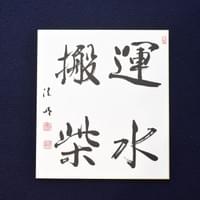 運水
搬柴